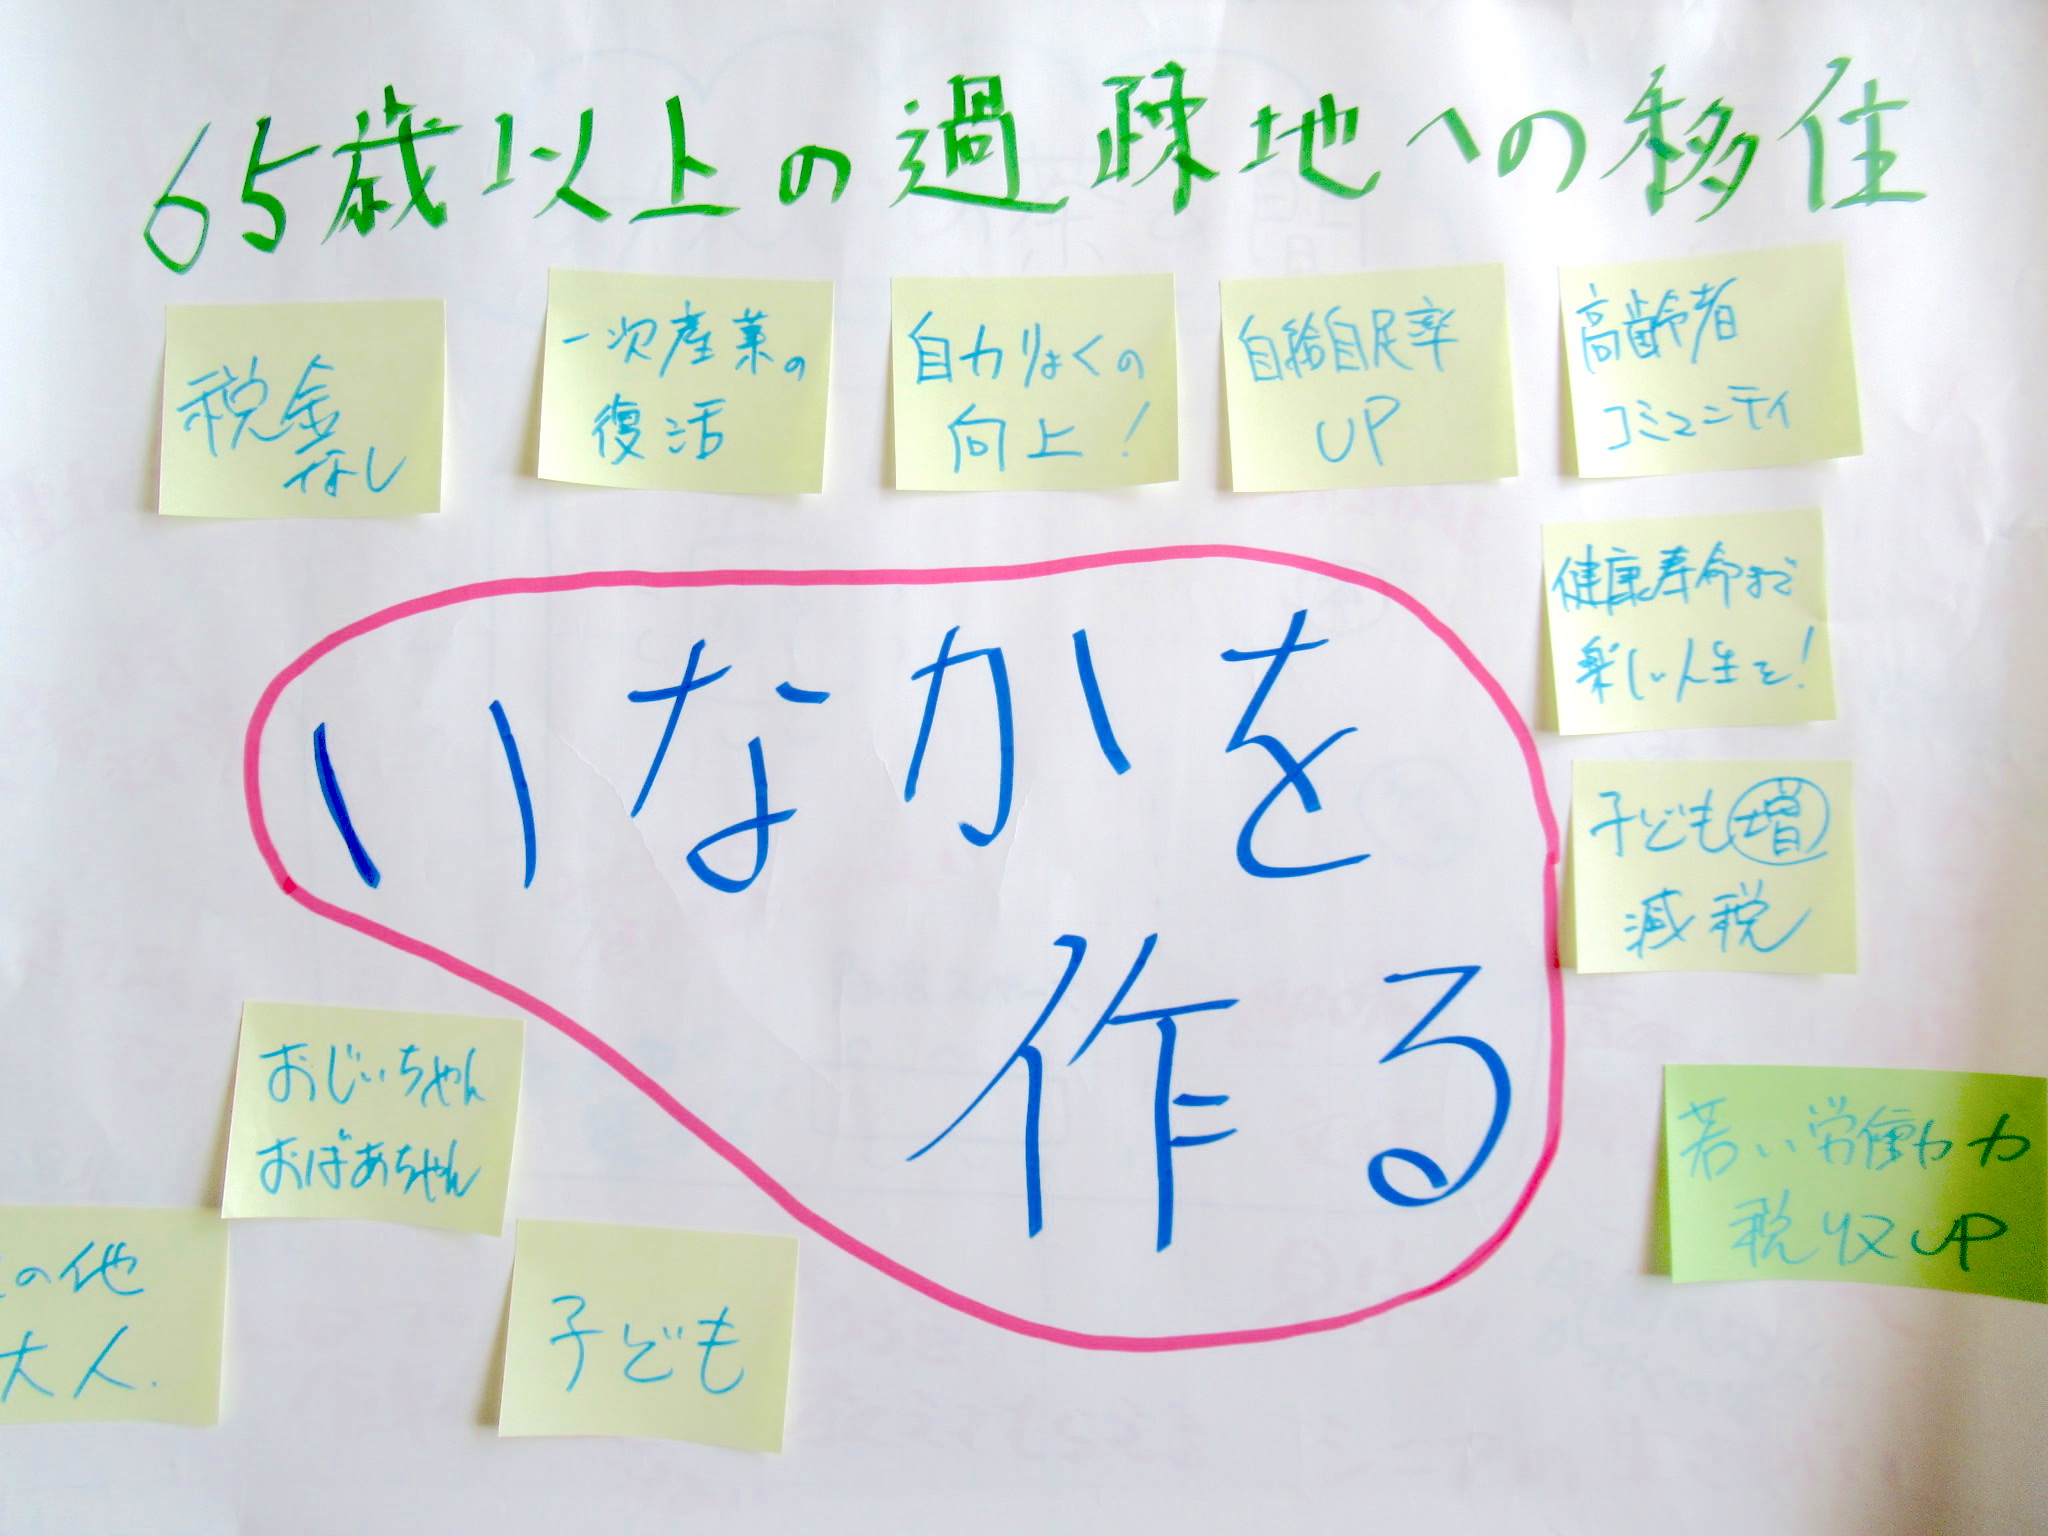 65歳以上の過疎地への移住
税金
なし
一次産業の
復活
自力りょくの
向上!
自給自足率
UP
高齢者
コミュニティ
健康寿命まで
楽しい人生を!
子ども増
減税
いなかを
作る
おじいちゃん
おばあちゃん
の他
大人.
子ども
若い労働力
税収UP